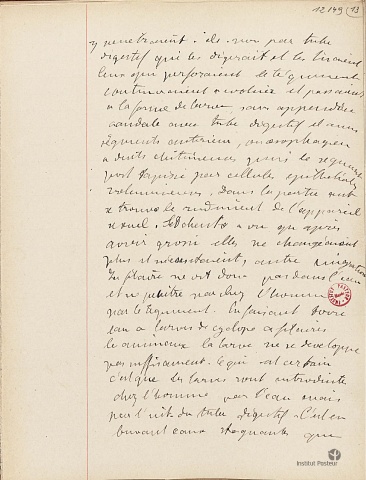 12149 (13
y pénétraient: ils non par tube
digestif qui les digérait et les tuaient
ceux qui perforaient le tégument
continuaient à évoluer et passaient
à la forme de larve, sans appendice
caudale avec tube digestif et anus
segments antérieur, œsophagien
à droits chitineuses puis le segment
post tapissé par cellules épithéliales
volumineuses, dans la partie
se trouve le rudiment de l'appareil
sexuel. a vu que après
avoir grossi elles ne changeaient
plus et nécessitaient, autre migration
La filaire ne vit donc pas dans l'eau
et ne pénètre pas chez l'homme
par le tégument. En faisant boire
eau à larves de cyclope à filaires
à animaux la larve ne se développe
pas suffisament. Ce qui est certain
c'est que les larves sont introduites
chez l'homme par l'eau mais
par l' du tube digestif. C'est en
buvant eaux stagnantes que
INSTITUT PASTEUR
Institut Pasteur